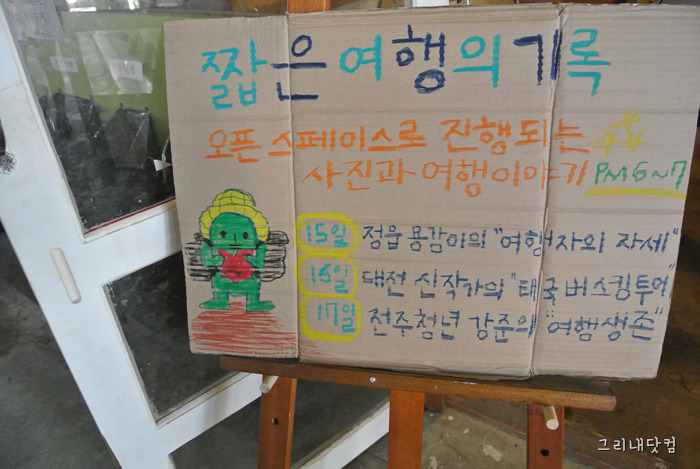 짧은여행의기록
오픈 스페이스로 진행되는
사진과 여행이야기 PM 6~7
15일 정읍 용감이의 "여행자의 자세"
16일 대전 신작가의 "태국 버스킹투어"
17일 전주청년 강준의 "여행생존"
그리내닷컴